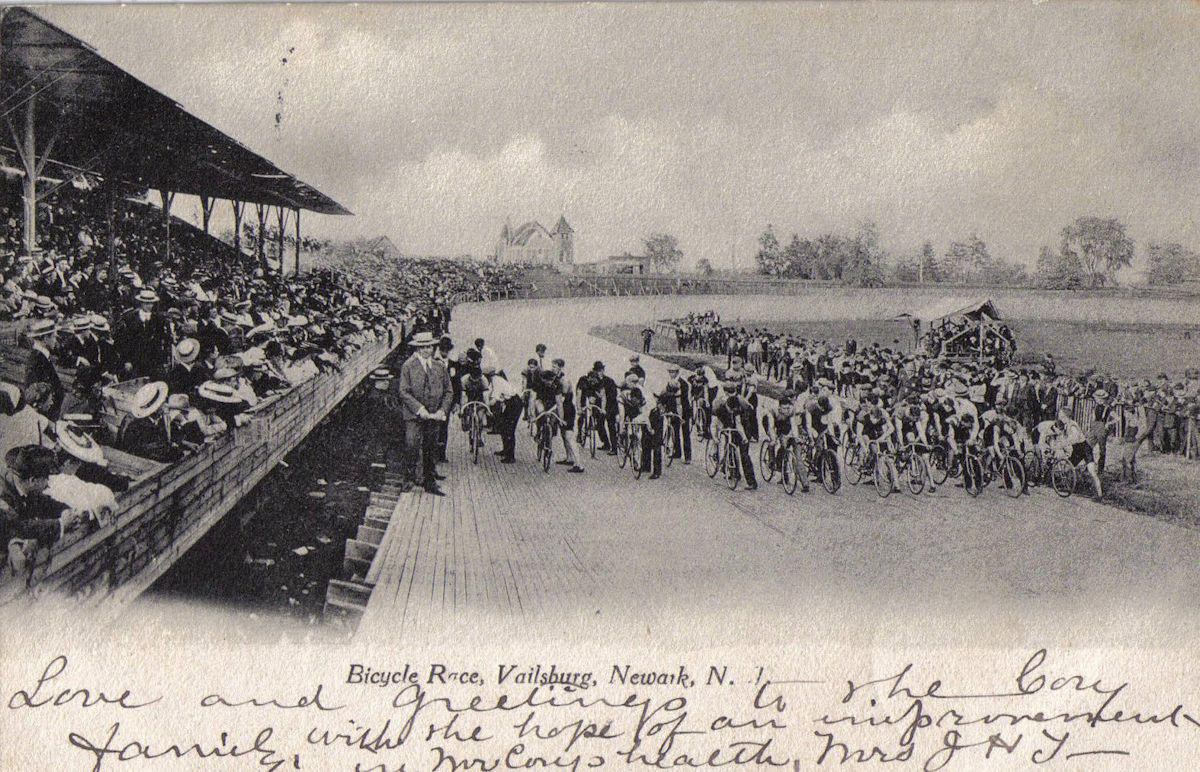 Bicycle Race, Vailsburg, Newark, N. J.
Love and greetings to the Cory
family, with the hope of an improvement
in Mr Corys health, Mrs J H T